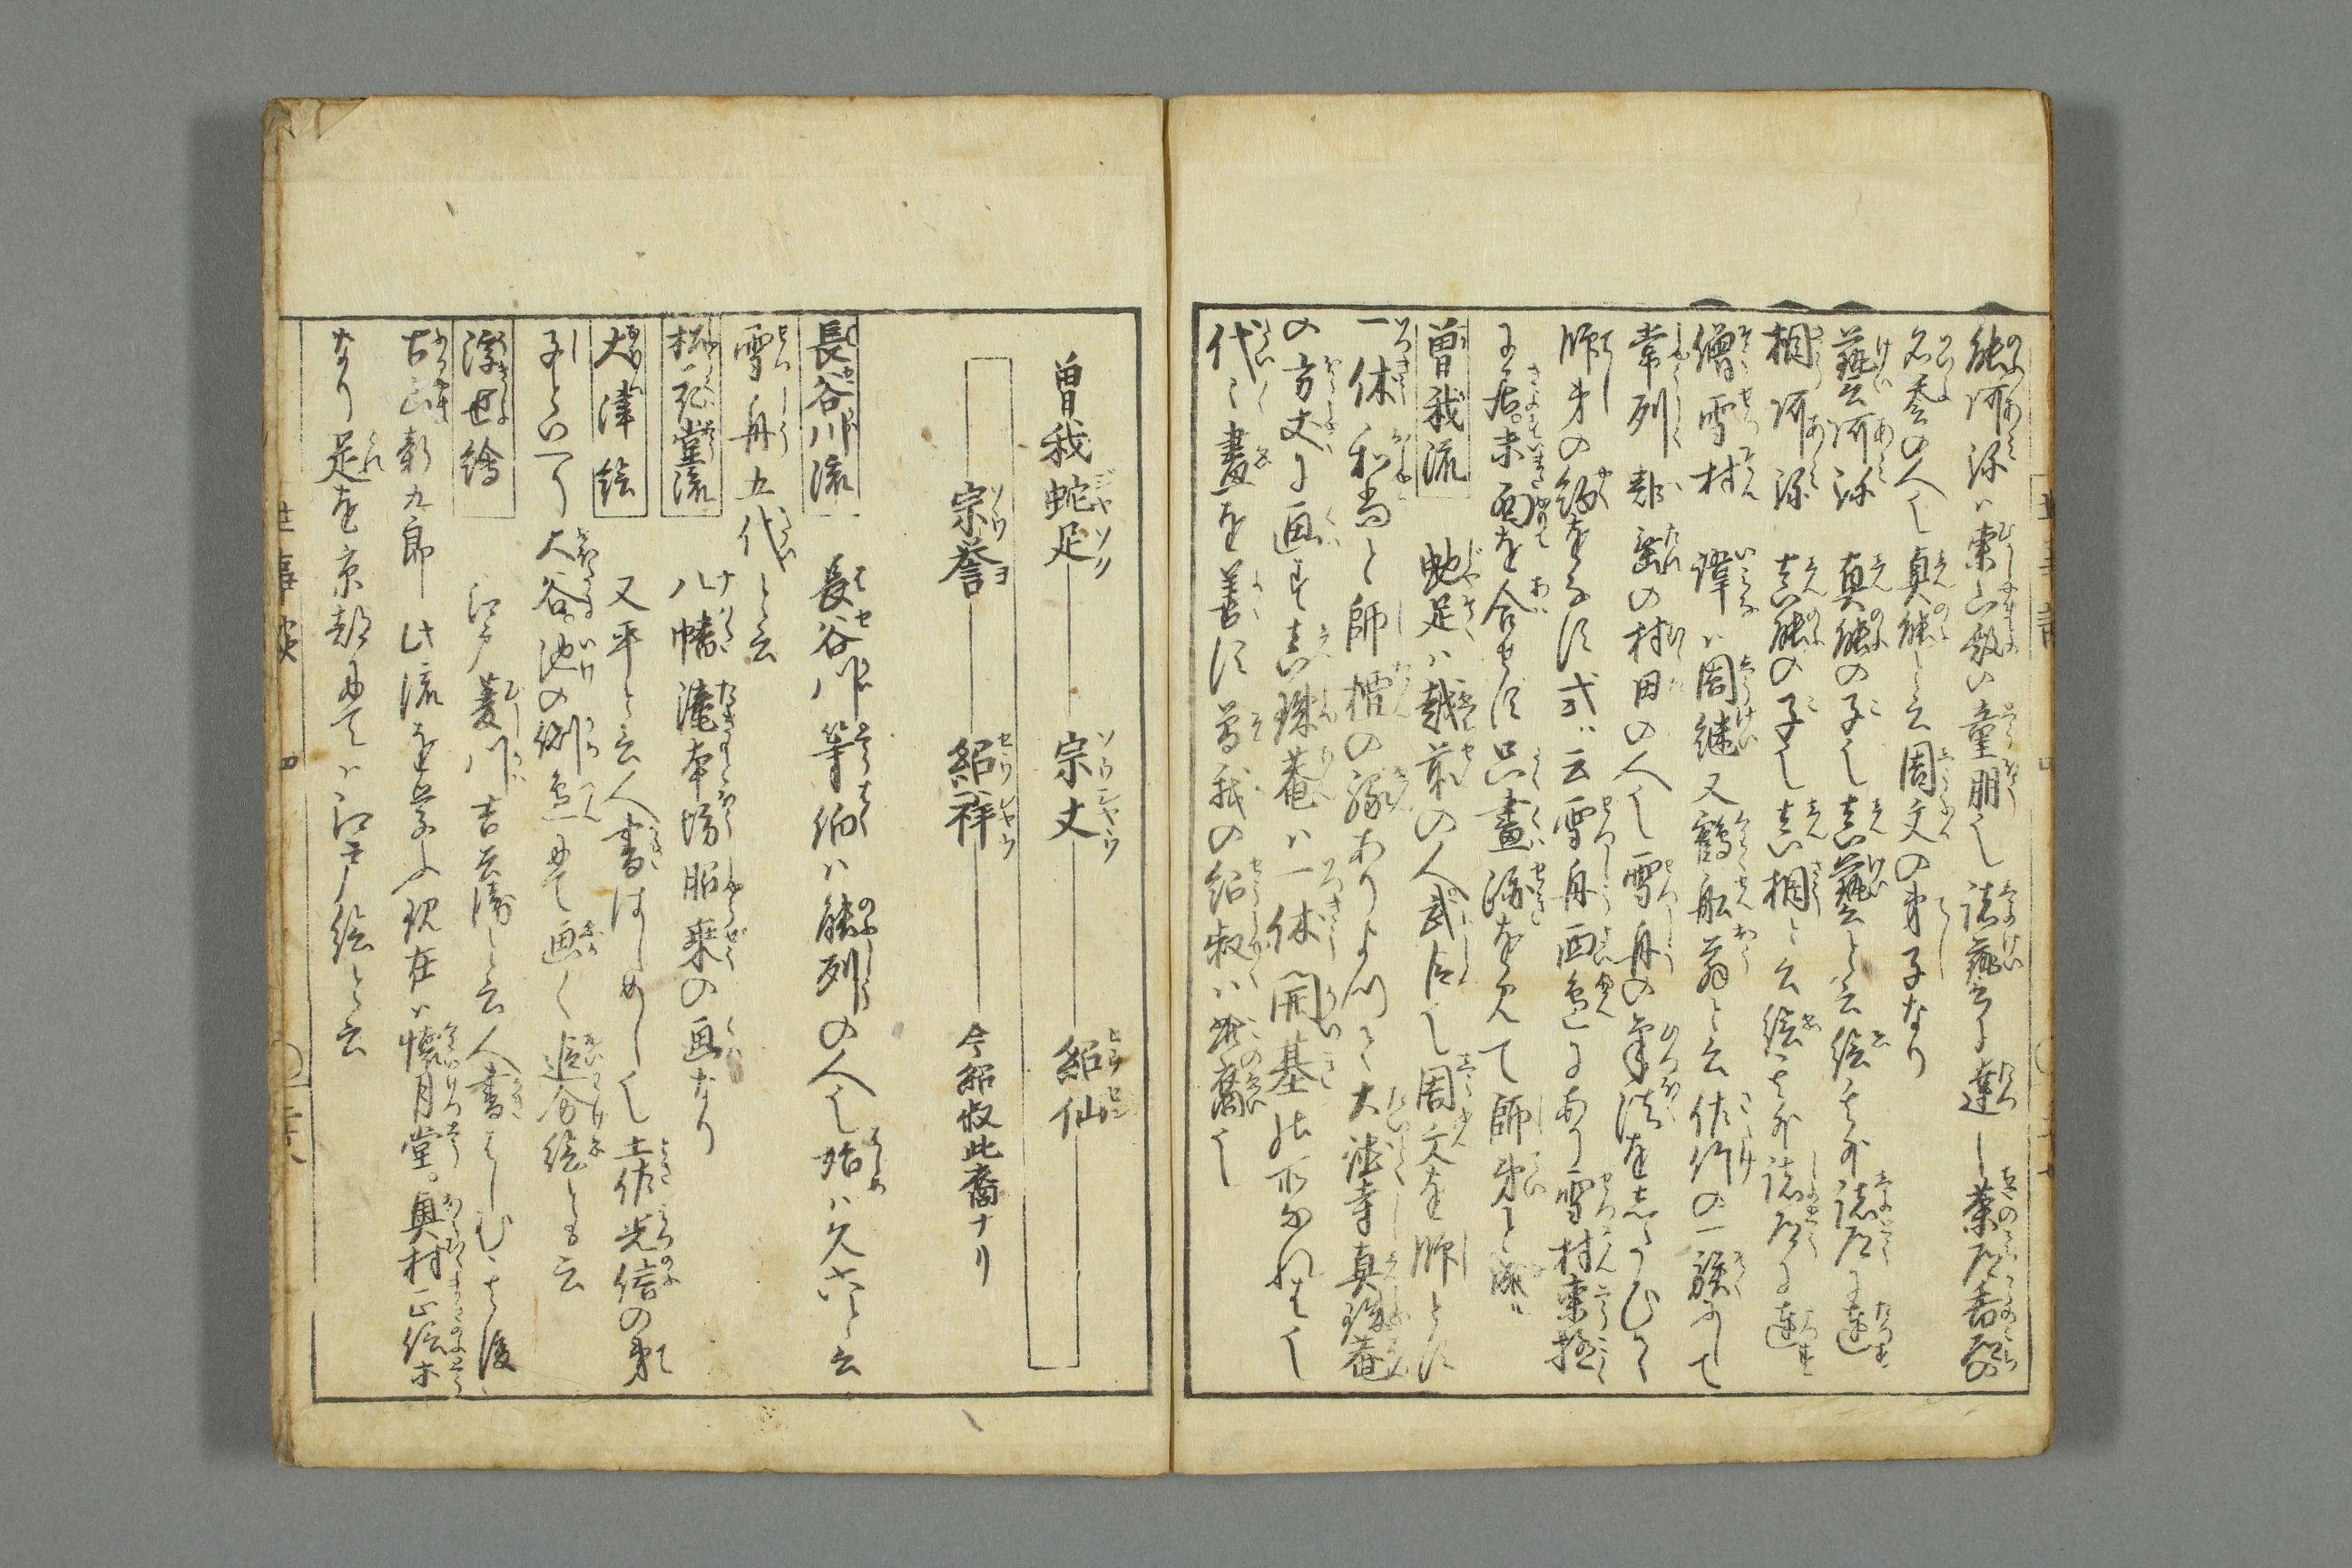 能阿弥ハ東山殿の童朋也 諸藝に達し茶道香道の
名誉の人也 真能と云周文の弟子なり
藝阿弥 真能の子也 真藝と云 絵其外諸道に達
相阿弥 真能の子也 真相と云 絵其外諸道に達
僧雪村 諱ハ周継又鶴船翁と云 佐竹の一族にして
常州部垂の村田の人也 雪舟の筆法を
師弟の約をなす 或ハ云雪舟西色にあり雪村東極
に居 未面を合せず只畫法を以て師弟と成
曽我流 蛇足ハ越前の人武臣也 周文を師とす
一休和尚と師檀の縁ありよつて大徳寺真珠菴
の方丈に画す 真珠菴ハ一休開基
代々畫を善す 曽我の紹叔ハ此裔也
曽我蛇足 宗丈 紹仙
宗誉 紹祥 今紹叔此裔ナリ
長谷川流 長谷川等伯ハ能州の人也 始ハ久六と云
雪舟五代と云
松花堂流 八幡滝本坊昭乗の画なり
大津絵 又平と云人書はじめし也 土佐光信の弟
子といへり 大谷池の側にて画く 追分絵とも云
浮世繪 江戸菱川吉兵衛と云人書はじむ 其後
古山新九郎此流を学ふ 現在ハ懐月堂。奥村正信等
なり 是を京都にてハ江戸絵と云